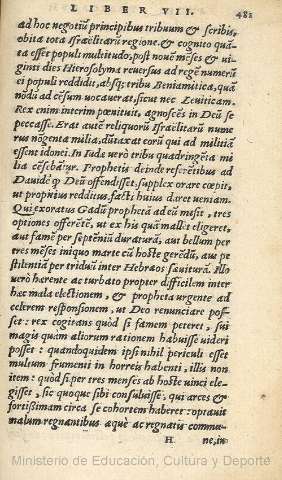 LIBER VII. 481
ad hoc negotiũ principibus tribuum & scribis,
obita tota Israëlitarũ regione, & cognito quã-
ta esset populi multitudo, post noue mẽses & ui-
ginti dies Hierosolyma reuersus ad regẽ numerũ
ei populi reddidit, absq; tribu Beniamitica, quã
nõdũ ad cẽsum uocauerat, sicut nec Leuiticam.
Rex enim interim pœnituit, agnoscẽs in Deũ se
peccasse. Erat autẽ reliquorũ Israëlitarũ nume
rus nõgenta milia, dũtaxat eorũ qui ad militiã
essent idonei. In Iuda verò tribu quadringẽta mi
lia cẽsebãtur. Prophetis deinde referẽtibus ad
Dauidẽ q̃ Deũ offendisset, supplex orare cœpit,
ut propitius redditus, facti huius daret veniam.
Qui exoratus Gadũ prophetã ad eũ mẽsit, tres
optiones offerẽtẽ, ut ex his quã mallet eligeret,
aut famẽ per septẽniũ duraturã, aut bellum per
tres mẽses iniquo marte cũ hoste gerẽdũ, aut pe
stilentiã per triduũ inter Hebræos sæuiturã. Illo
verò hærente ac turbato propter difficilem inter
hæc mala electionem, & propheta urgente ad
celerem responsionem, ut Deo renunciare pos-
set: rex cogitans quòd si famem peteret, sui
magis quàm aliorum rationem habuisse videri
posset: quandoquidem ipsi nihil periculi esset
multum frumenti in horreis habenti, illis non
item: quòd si per tres menses ab hoste uinci ele-
gisset, sic quoque sibi consuluisse, qui arces &
fortissimam circa se cohortem haberet: optauit
malum regnantibus æquè ac regnatis commu-
H ne, in
Ministerio de Educación, Cultura y Deporte